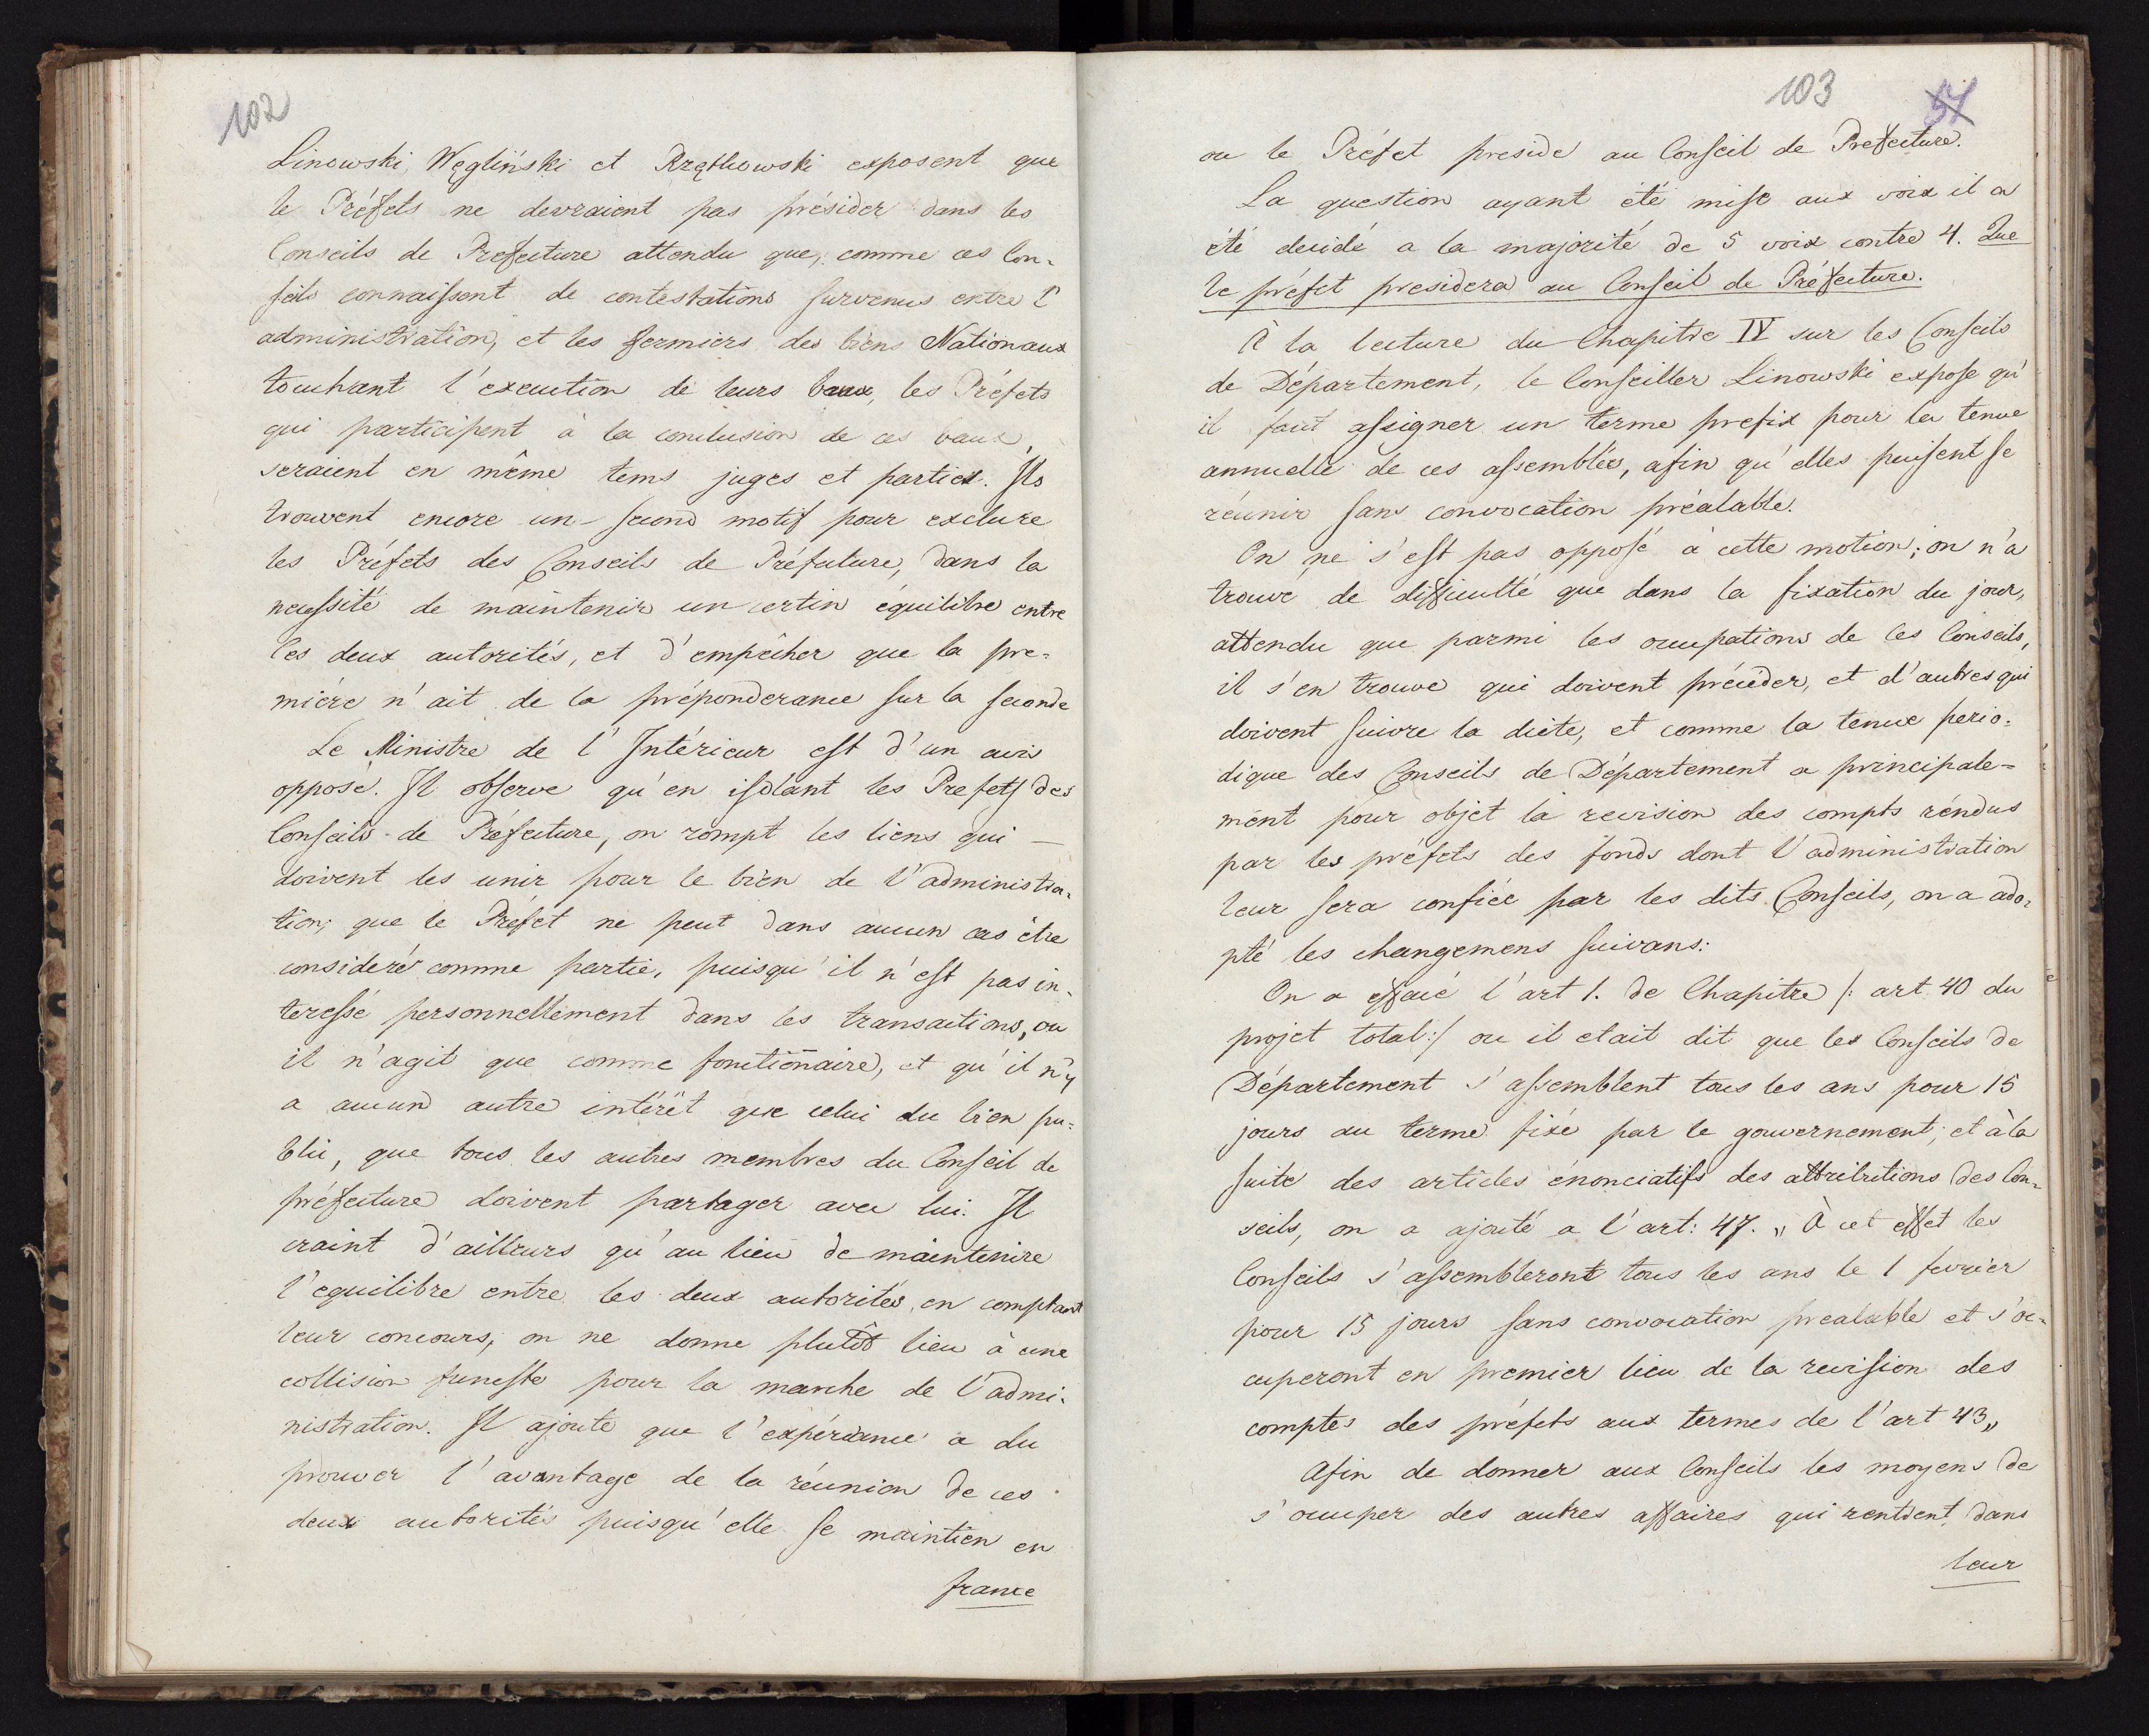 102
Linowski, Węgliński et Rzętkowski exposent que
le Préfets ne devraient pas présider dans les
Conseils de Prefecture attendu que, comme ces Con-
seils connaissent de contestations survenus entre l'
administration, et les fermiers des biens Nationaux
touchant l'execution de leurs baux, les Préfets
qui participent à la conclusion de ces baux,
seraient en même tems juges et parties. Ils
trouvent encore un second motif pour exclure
les Préfets des Conseils de Préfecture, dans la
necessité de maintenir un certin équilibre entre
les deux autorités, et d'empêcher que la pre-
miére n'ait de la préponderance sur la seconde
Le Ministre de l'Intérieur est d'un avis
opposé. Il observe qu'en isolant les Prefets des
Conseils de Préfecture, on rompt les liens qui —
doivent les unir pour le bien de l'administra-
tion; que le Préfet ne peut dans aucun cas être
consideré comme partie, puisqu'il n'est pas in-
teressé personnellement dans les transactions, ou
il n'agit que comme fonctionaire, et qu'il n'y
a aucun autre intérêt que celui du bien pu-
blic, que tous les autres membres du Conseil de
préfecture doivent partager avec lui. Il
craint d'ailleurs qu'au lieu de maintenire
l'equilibre entre les deux autorités, en comptant
leur concours, on ne donne plutôt lieu à une
collision funeste pour la marche de l'admi-
nistration. Il ajoute que l'expériance a du
prouver l'avantage de la réunion de ces
deux autorités puisqu'elle se maintien en
france
103
51
ou le Préfet preside au Conseil de Prefecture.
La question ayant été mise aux voix il a
été decidé a la majorité de 5 voix contre 4. Que
le préfet presidera au Conseil de Préfecture.
À la lecture du Chapitre IV sur les Conseils
de Département, le Conseiller Linowski expose qu'
il faut assigner un terme prefix pour la tenue
annuelle de ces assemblées, afin qu'elles puissent se
réunir sans convocation préalable.
On ne s'est pas opposé à cette motion; on n'a
trouvé de difficulté que dans la fixation du jour,
attendu que parmi les occupations de ces Conseils,
il s'en trouve qui doivent précéder, et d'autres qui
doivent suivre la diéte, et comme la tenue perio-
dique des Conseils de Département a principale-
ment pour objet la revision des compts réndus
par les préfets des fonds dont l'administration
leur sera confiée par les dits Conseils, on a ado-
pté les changemens suivans:
On a effacé l'art 1. de Chapitre /: art 40 du
projet total:/ ou il etait dit que les Conseils de
Département s'assemblent tous les ans pour 15
jours au terme fixé par le gouvernement, et à la
suite des articles énonciatifs des attributions des Con-
seils, on a ajouté a l'art: 47. „ À cet effet les
Conseils s'assembleront tous les ans le 1 fevrier
pour 15 jours sans convocation prealable et s'oc-
cuperont en premier lieu de la revision des
comptes des préfets aux termes de l'art 43„
Afin de donner aux Conseils les moyens de
s'occuper des autres affaires qui rentrent dans
leur